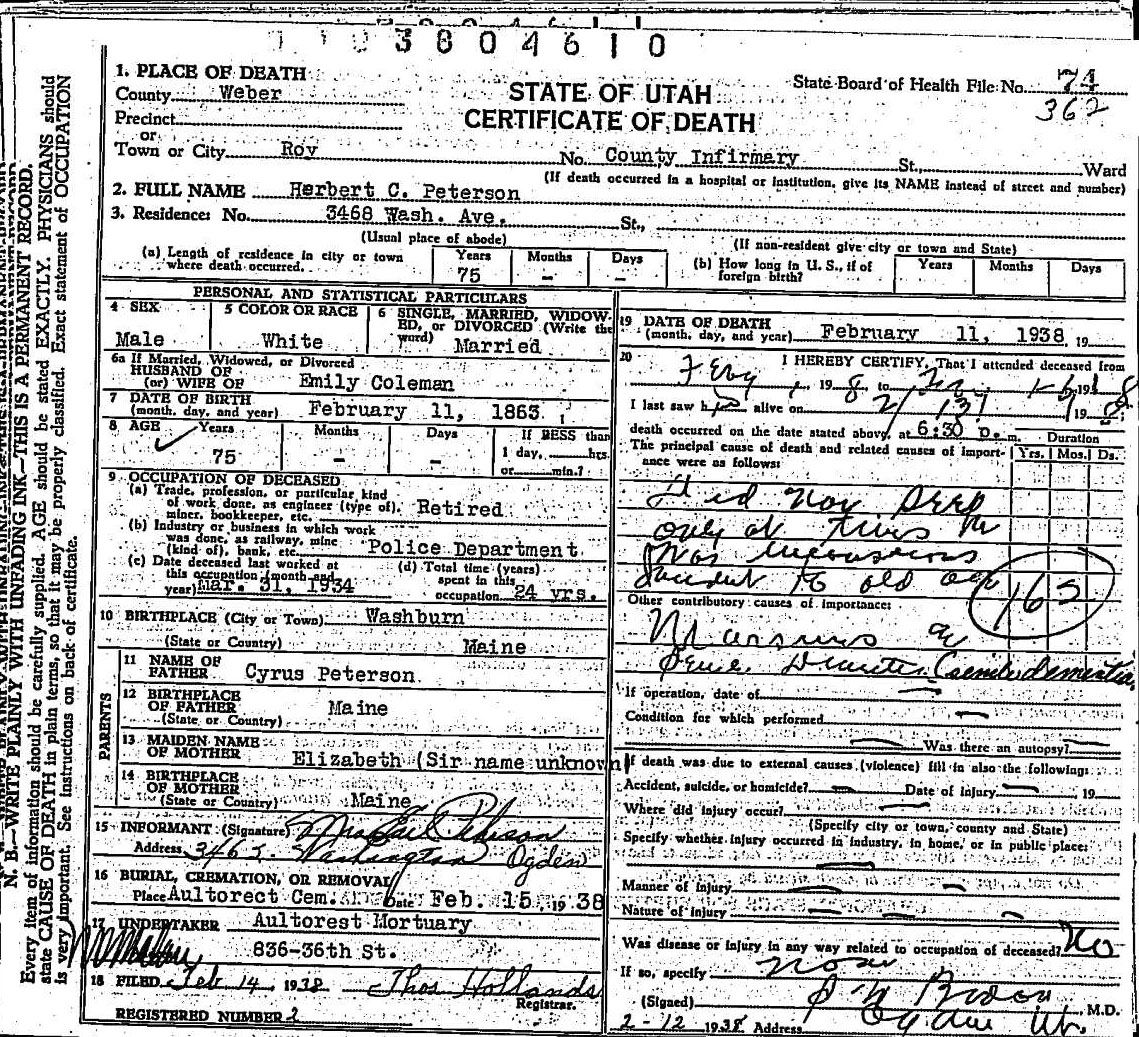 3 8 0 4 6 1 0
1. PLACE OF DEATH
County Weber
Precinct
or
Town or City Roy
STATE OF UTAH
CERTIFICATE OF DEATH
State Board of Health File No. 74
362
No. County Infirmary St., Ward
(If death occurred in a hospital or institution, give its NAME instead of street and number)
2. FULL NAME Herbert C. Peterson
3. Residence: No. 3468 Wash. Ave. St.,
(Usual place of abode) (If non-resident give city or town and State)
(a) Length of residence in city or town where death occurred. Years 75 Months – Days –
(b) How long in U. S., if of foreign birth? Years Months Days
PERSONAL AND STATISTICAL PARTICULARS
4 SEX Male
5 COLOR OR RACE White
6 SINGLE, MARRIED, WIDOWED, or DIVORCED (Write the word) Married
6a If Married, Widowed, or Divorced
HUSBAND OF
(or) WIFE OF Emily Coleman
7 DATE OF BIRTH
(month, day, and year) February 11, 1863.
8 AGE Years 75 Months – Days – If LESS than
1 day, hrs.
or min.?
9 OCCUPATION OF DECEASED
(a) Trade, profession, or particular kind
of work done, as engineer (type of),
miner, bookkeeper, etc. Retired
(b) Industry or business in which work
was done, as railway, mine
(kind of), bank, etc. Police Department
(c) Date deceased last worked at
this occupation (month and
year) Mar. 31, 1934
(d) Total time (years)
spent in this
occupation 24 yrs.
10 BIRTHPLACE (City or Town) Washburn
(State or Country) Maine
PARENTS
11 NAME OF
FATHER Cyrus Peterson
12 BIRTHPLACE
OF FATHER Maine
(State or Country)
13 MAIDEN NAME
OF MOTHER Elizabeth (Sir name unknown
14 BIRTHPLACE
OF MOTHER
(State or Country) Maine
15 INFORMANT (Signature)
Address Washington Ogden
16 BURIAL, CREMATION, OR REMOVAL
Place Aultorect Cem. Date Feb. 15, 1938
17 UNDERTAKER Aultorest Mortuary
836-36th St.
18 FILED Feb 14 1938 Thos Hollands
Registrar.
REGISTERED NUMBER 2
19 DATE OF DEATH
(month, day, and year) February 11, 1938 19
20 I HEREBY CERTIFY, That I attended deceased from
19 8 to
I last saw h alive on 19
death occurred on the date stated above, at 6:30 p.m. Duration
The principal cause of death and related causes of importance were as follows: Yrs. Mos. Ds.
only at times he
was
to old age
162
Other contributory causes of importance:
(senile dementia)
If operation, date of
Condition for which performed
Was there an autopsy?
If death was due to external causes (violence) fill in also the following:
Accident, suicide, or homicide? Date of injury 19
Where did injury occur?
(Specify city or town, county and State)
Specify whether injury occurred in industry, in home, or in public place:
Manner of injury
Nature of injury
Was disease or injury in any way related to occupation of deceased? No
If so, specify
(Signed) M.D.
2-12 1938 Address Ogden Ut.
N. B.—WRITE PLAINLY WITH UNFADING INK—THIS IS A PERMANENT RECORD.
Every item of information should be carefully supplied. AGE should be stated EXACTLY. PHYSICIANS should
state CAUSE OF DEATH in plain terms, so that it may be properly classified. Exact statement of OCCUPATION
is very important. See instructions on back of certificate.